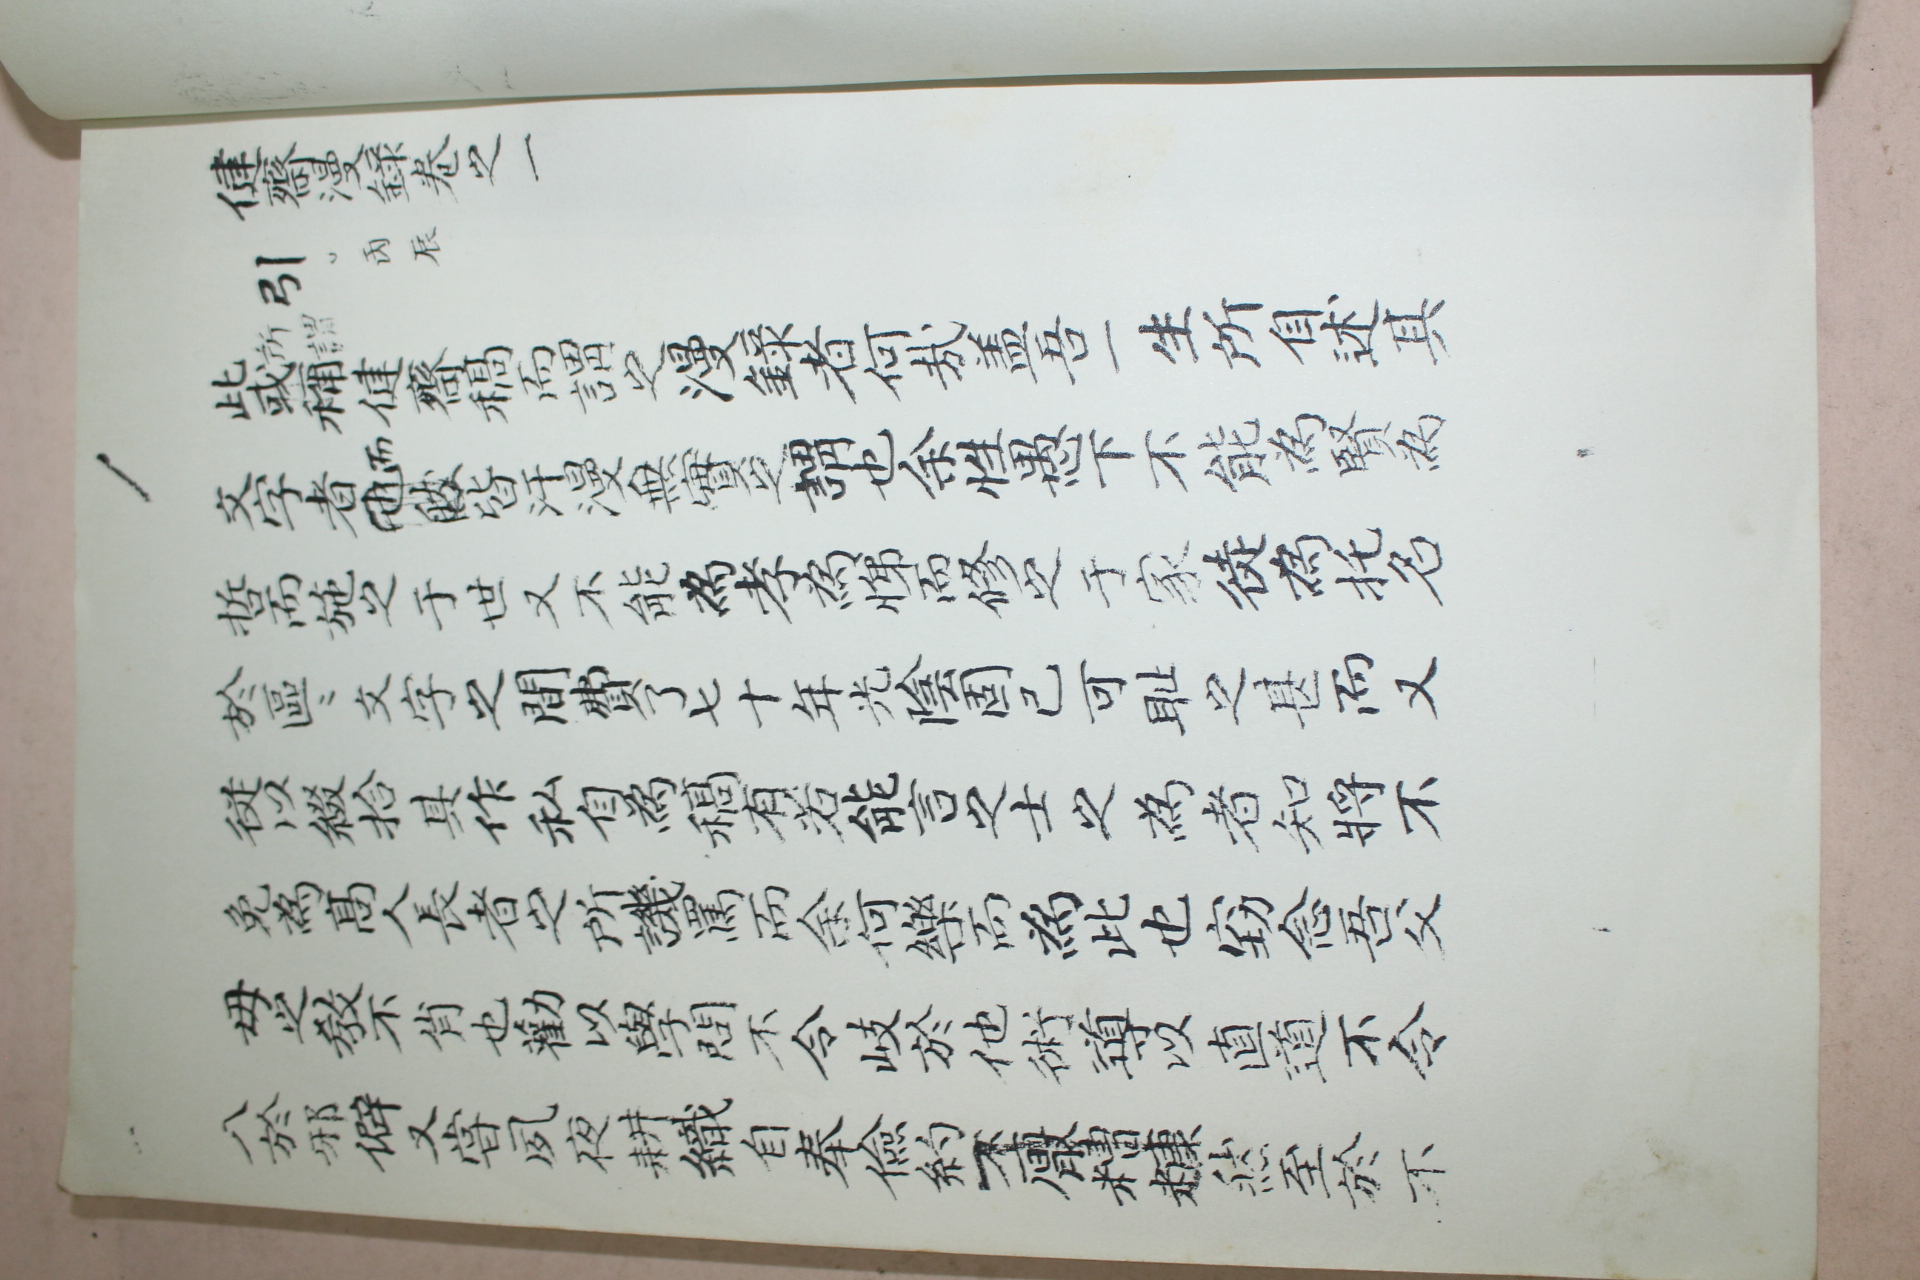 健齋漫錄卷之一
引 丙辰
此或稱健齋稿而謂之漫錄者何哉盖吾一生所自述其
所謂
文字者而皆汗漫無實之謂也余性愚下不能為賢為
哲而施之于世又不能為孝為悌而修之于家徒為托名
於區〻文字之間費了七十年光陰固已可耻之甚而又
從以綴拾具作私自為稿有若能言之士之為者知將不
免為高人長者之所譏罵而余何樂而為此也竊念吾父
母之敎不肖也勸以學問不令歧於他術導以直道不令
入於邪僻又嘗夙夜耕織自奉儉約不厭糟糠然至於不